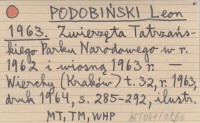 PODOBIŃSKI Leon
1963. Zwierzęta Tatrzań-
skiego Parku Narodowego w r.
1962 i wiosną 1963 r. —
Wierchy (Kraków) t. 32, r. 1963,
druk 1964, s. 285-292, ilustr.
MT, TM, WHP